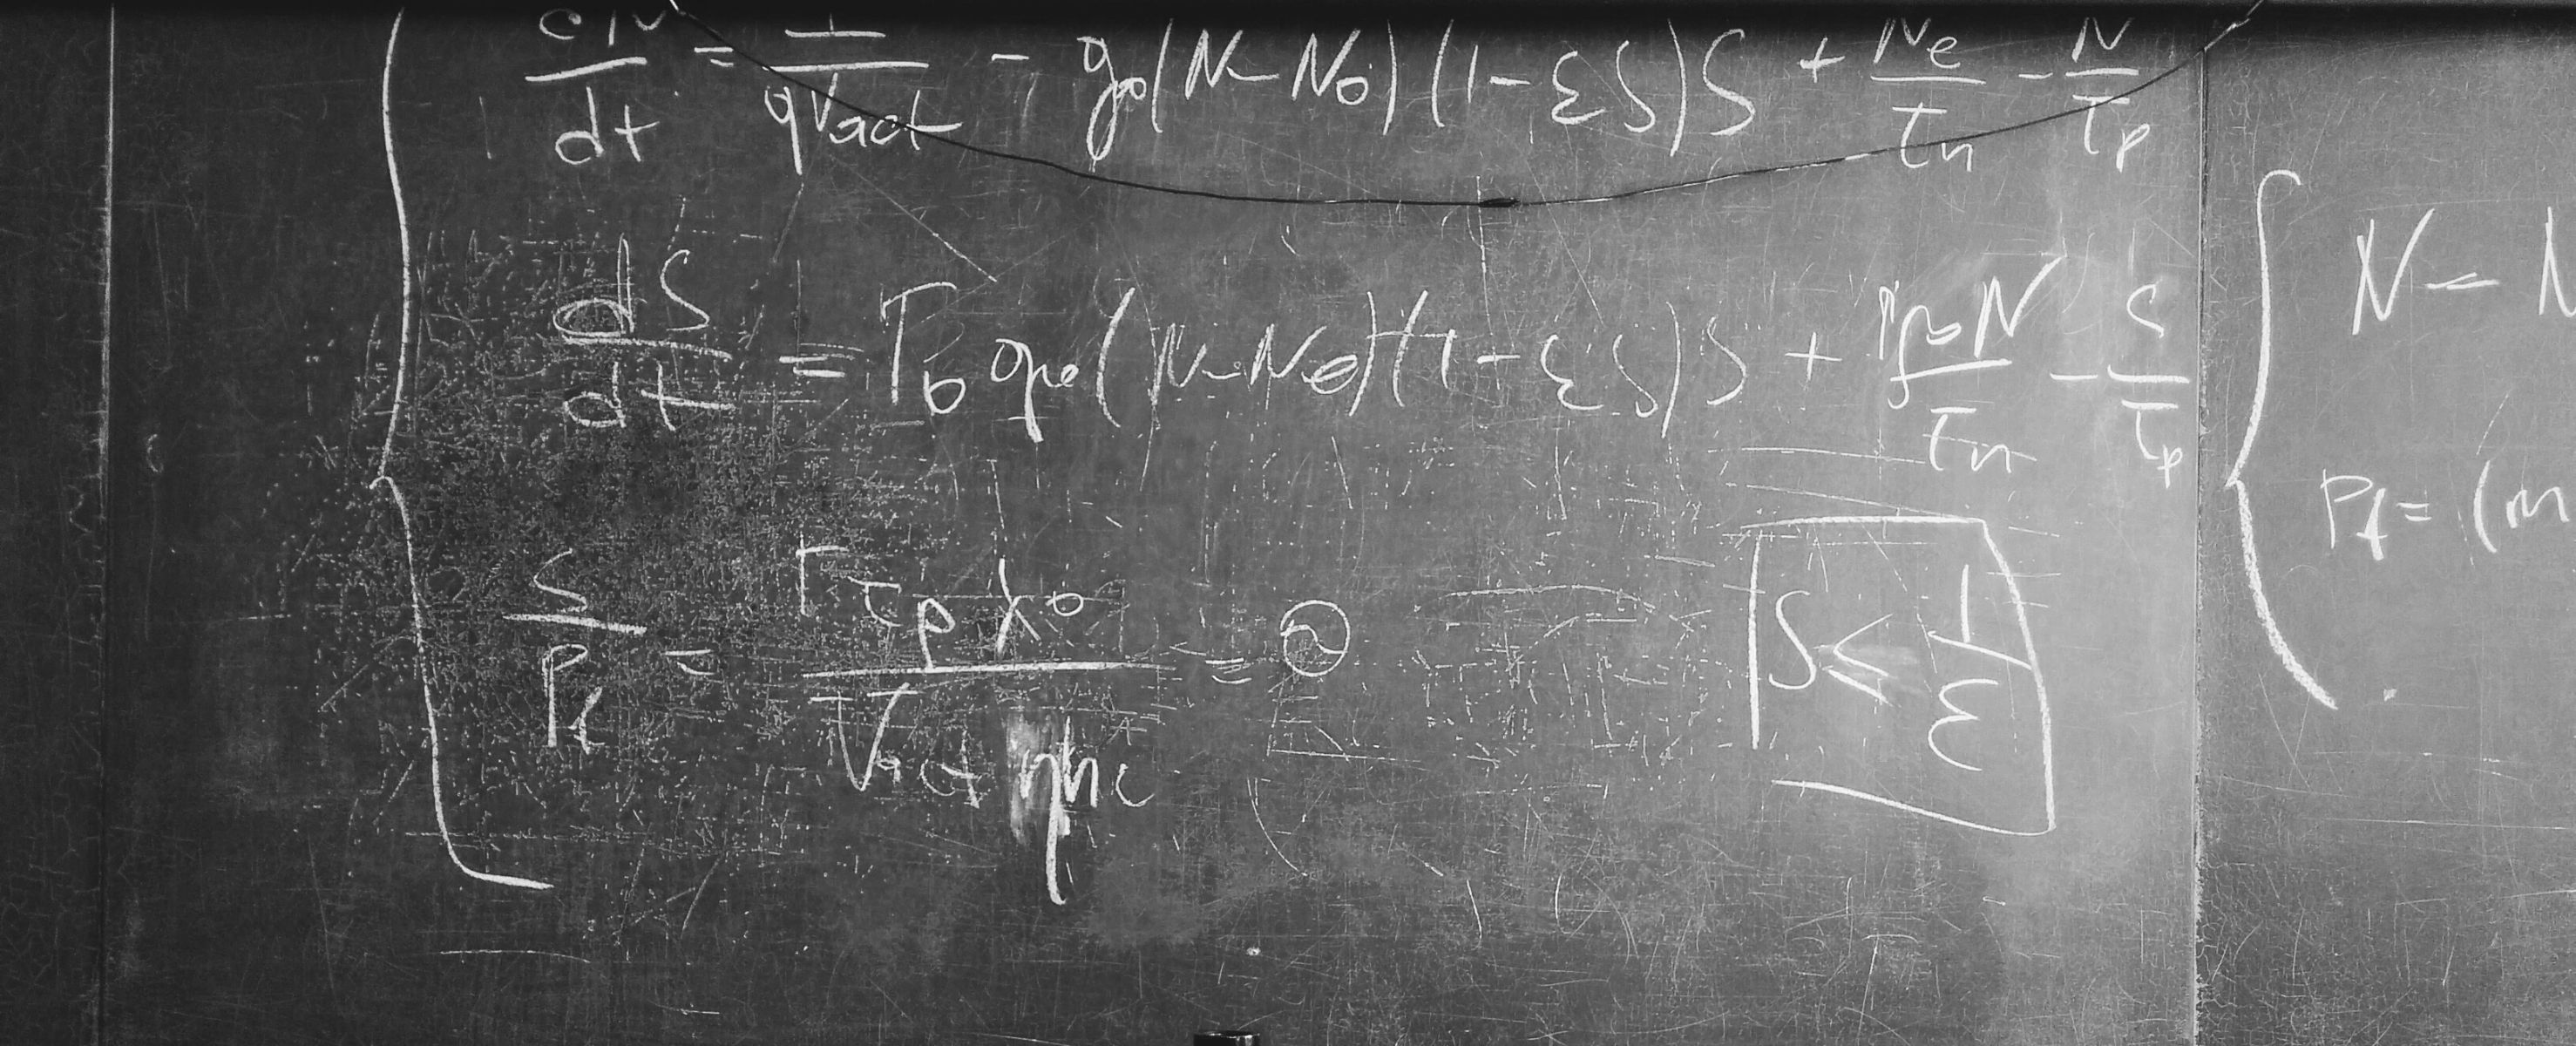 dN/dt = I/qVact - g₀(N-N₀)(1-εS)S + Ne/τn - N/τp
dS/dt = Γ₀ g₀(N-N₀)(1-εS)S + ΓβN/τn - S/τp
S/Pf = Γτpλ₀/Vact ηhc =
S ≤ 1/ε
N = N
Pf = (m